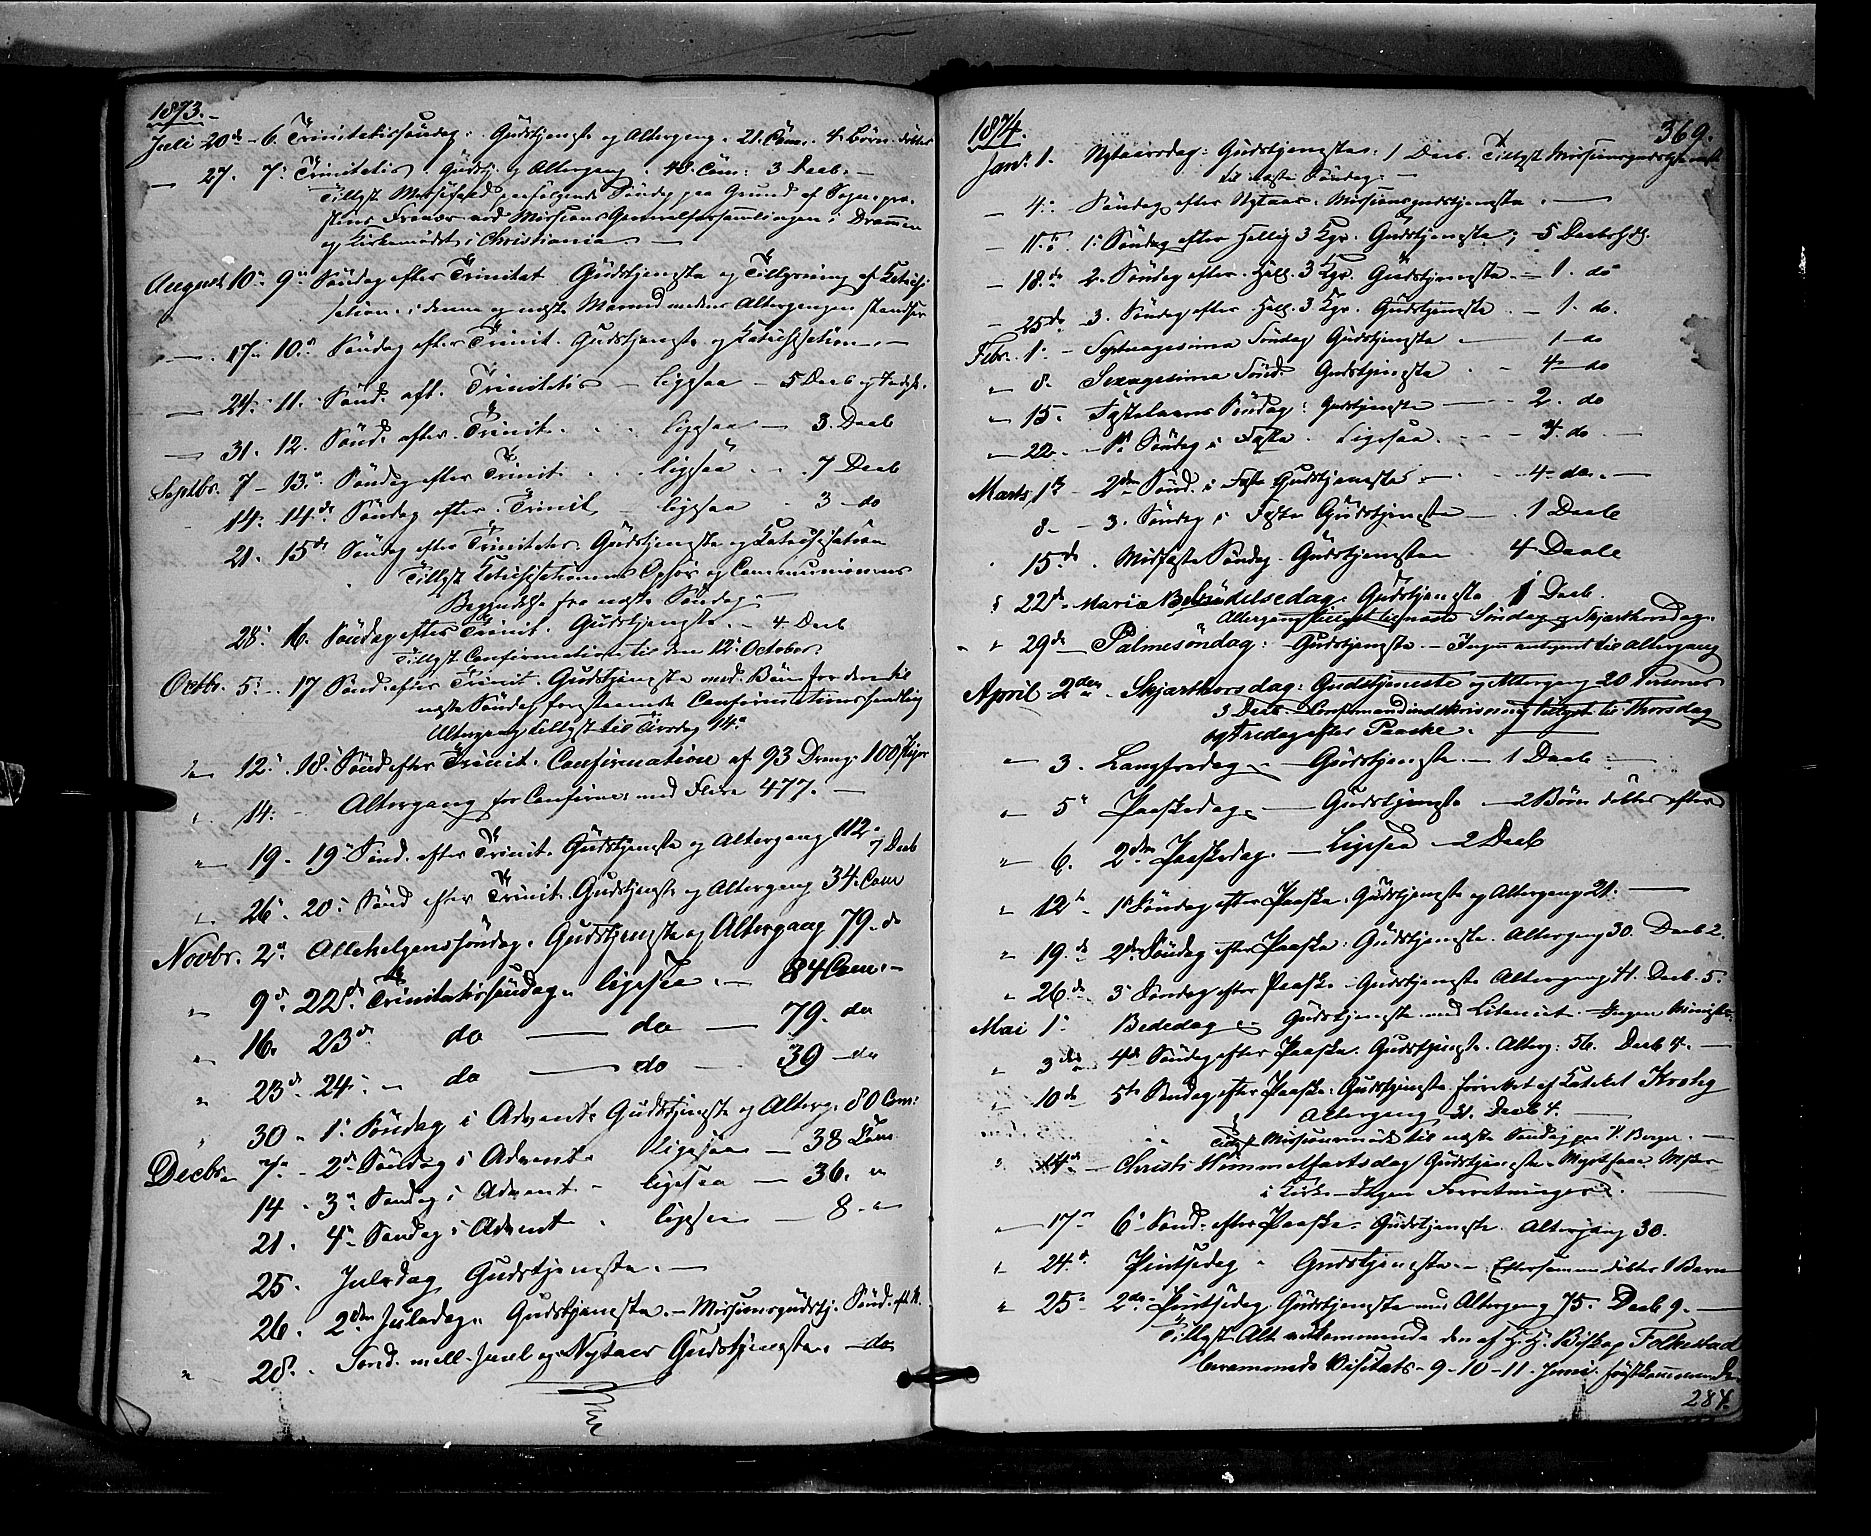 1873.
Juli 20de - 6. Trinitatissøndag: Gudstjeneste og Altergang. 21. Com. 4 Børn døbte
— 27. 7. Trinitatis Gudstj. og Altergang. 48. Com: 3 Daab. —
Tillyst Messefald paafølgende Søndag paa Grund af Sogneprestens
Fravær ved Missions Generalforsamlingen i Drammen
og Kirkemødet i Christiania. —
August 10de 9de Søndag efter Trinitat. Gudstjeneste og Tillysning af Katechisation
i denne og næste Maaned medens Altergangen standser
— 17de 10de Søndag efter Trinit. Gudstjeneste og Katechisation. —
— 24. 11. Sønd. eft. Trinitatis — ligesaa — 5 Daab
— 31. 12. Sønd. efter Trinit. . . ligesaa — 3. Daab
Septbr. 7 — 13. Søndag efter Trinit . . ligesaa . . 7 Daab
14. 14de Søndag efter Trinit. — ligesaa — 3 — do
21. 15de Søndag efter Trinitatis. Gudstjeneste og Katechisation
Tillyst Katechisationens Ophør og Communionens
Begyndelse fra næste Søndag. —
28. 16. Søndag efter Trinit. Gudstjeneste. — 4 Daab
Tillyst Confirmation til den 12te October.
Octbr. 5. 17 Sønd. efter Trinit. Gudstjeneste med Bøn for den til
næste Søndag forestaaende Confirmationshandling
Altergang tillyst til Tirsdag 14de
" 12. 18. Sønd. efter Trinit. Confirmation af 93 Drenge 100 Piger
" 14. — Altergang for Confirm: med Flere 477. —
" 19 — 19 Sønd. efter Trinit. Gudstjeneste og Altergang 112.
7 Daab
" 26. 20. Sønd efter Trinit. Gudstjeneste og Altergang 34. Com
Novbr. 2. Allehelgenssøndag. Gudstjeneste og Altergang 79. do
" 9de 22de Trinitatissøndag. ligesaa. — 84 Com. —
" 16. 23de do — do — 79. do
" 23de 24. — do — do — 39 — do
" 30 — 1. Søndag i Advent. Gudstjeneste og Alterg. 80 Com:
Decbr. 7. — 2de Søndag i Advent. ligesaa — 38 Com
14 . 3de Søndag i Advent — ligesaa — 36. "
21. 4de Søndag i Advent . ligesaa — 8. "
25. Juledag Gudstjeneste. —
26. 2den Juledag. Gudstjeneste. — Missionsgudstj. Sønd. eft. N.
" 28. Sønd. mell. Juul og Nytaar Gudstjeneste. — do
1874. 369.
Janr. 1. Nytaarsdag: Gudstjeneste. 1 Daab. Tillyst Missionsgudstjeneste
til næste Søndag. —
— 4. Søndag efter Nytaar. Missionsgudstjeneste. —
— 11te 1. Søndag efter Hellig 3 Kgr. Gudstjeneste; 5
— 18de 2. Søndag efter Hell. 3 Kgr. Gudstjeneste. — 1. do
— 25de 3. Søndag efter Hell. 3 Kgr. Gudstjeneste. — 1. do.
Febr. 1. — Septuagesima Søndag Gudstjeneste — 1 — do
" 8. Sexagesima Sønd. Gudstjeneste . — 4 — do
" 15. Fastelavns Søndag: Gudstjeneste — 2. do
— 22. 1ste Søndag i Faste. Ligesaa. — 4. do —
Marts 1ste — 2den Sønd. i Faste Gudstjeneste. — 4 — do. —
8. — 3. Søndag i Faste Gudstjeneste — . 1 Daab
15de . Midfaste Søndag. Gudstjeneste 4 Daab
" 22de. Mariæ Bebudelsesdag. Gudstjeneste 1 Daab.
Altergang tillyst til næste Søndag og Skjærthorsdag.
" 29de Palmesøndag: Gudstjeneste. — Ingen antegnet til Altergang
April 2den. Skjærthorsdag: Gudstjeneste og Altergang 20 Personer
3 Daab. Confirmandindskrivning tillyst til Thorsdag
og Fredag efter Paaske.
— 3. Langfredag. — Gudstjeneste. — 1 Daab —
" 5te Paaskedag. — Gudstjeneste — 2 Børn døbte efter
" 6. 2den Paaskedag. — Ligesaa — 2 Daab
" 12te . 1ste Søndag efter Paaske. Gudstjeneste og Altergang 21. —
" 19. de 2den Søndag efter Paaske. Gudstjeneste. Altergang 30. Daab 2.
" 26de 3die Søndag efter Paaske. Gudstjeneste Altergang 41. Daab. 5.
Mai 1. Bededag. — Gudstjeneste med Litaniet. Ingen
" 3die 4de Søndag efter Paaske. Gudstjeneste. Alterg: 56. Daab 4. —
" 10de 5te Søndag efter Paaske. Gudstjeneste forrettet af Kateket Krohg
Altergang 31. Daab 4. —
Tillyst Missionsmøde til næste Søndag paa N. Berger. —
" 14de — Christi Himmelfartsdag Gudstjeneste.
i Kirke — Ingen Forretninger. —
— 17de 6te Sønd. efter Paaske. Gudstjeneste. Altergang 30.
" 24de Pintsedag. Gudstjeneste. — Eftersammen døbtes 1 Barn
" 25de 2den Pintsedag. Gudstjeneste med Altergang 75. Daab 9. —
Tillyst Alt vedkommende den af H. H. Biskop Folkestad
berammede Visitats — 9 — 10 — 11. Juni førstkommende
284.